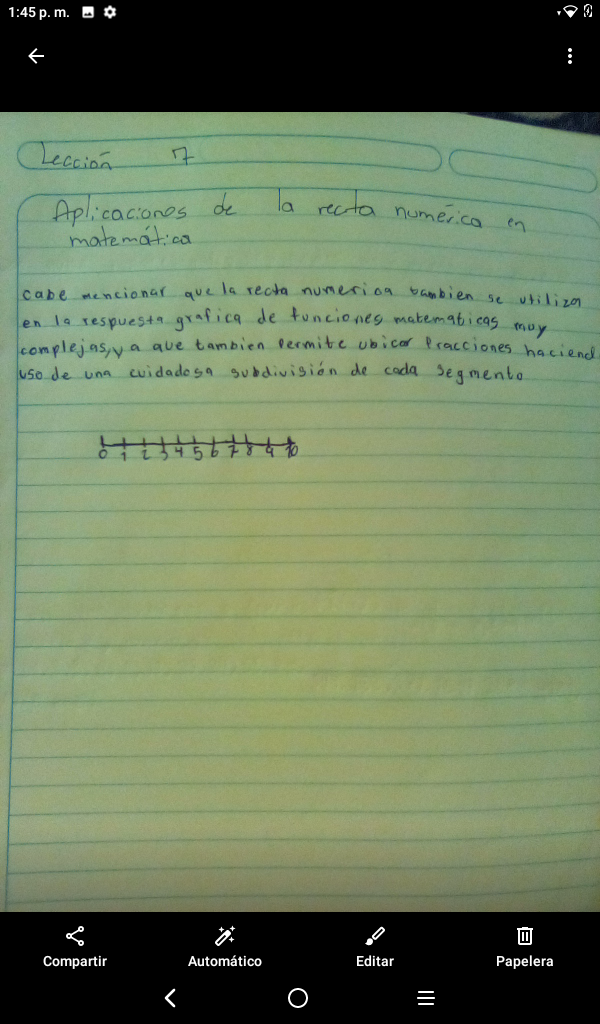 1:45 p. m.
Lección 7
Aplicaciones de la recta numérica en
matemática
cabe mencionar que la recta numerica tambien se utiliza
en la respuesta grafica de funciones matematicas muy
complejas, y a que tambien permite ubicar fracciones haciend
uso de una cuidadosa subdivisión de cada segmento
0 1 2 3 4 5 6 7 8 9 10
Compartir Automático Editar Papelera